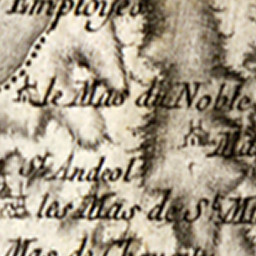 Employés
le Mas du Noble
Ma
St. Andeol
les Mas de St. Mi
Mas de